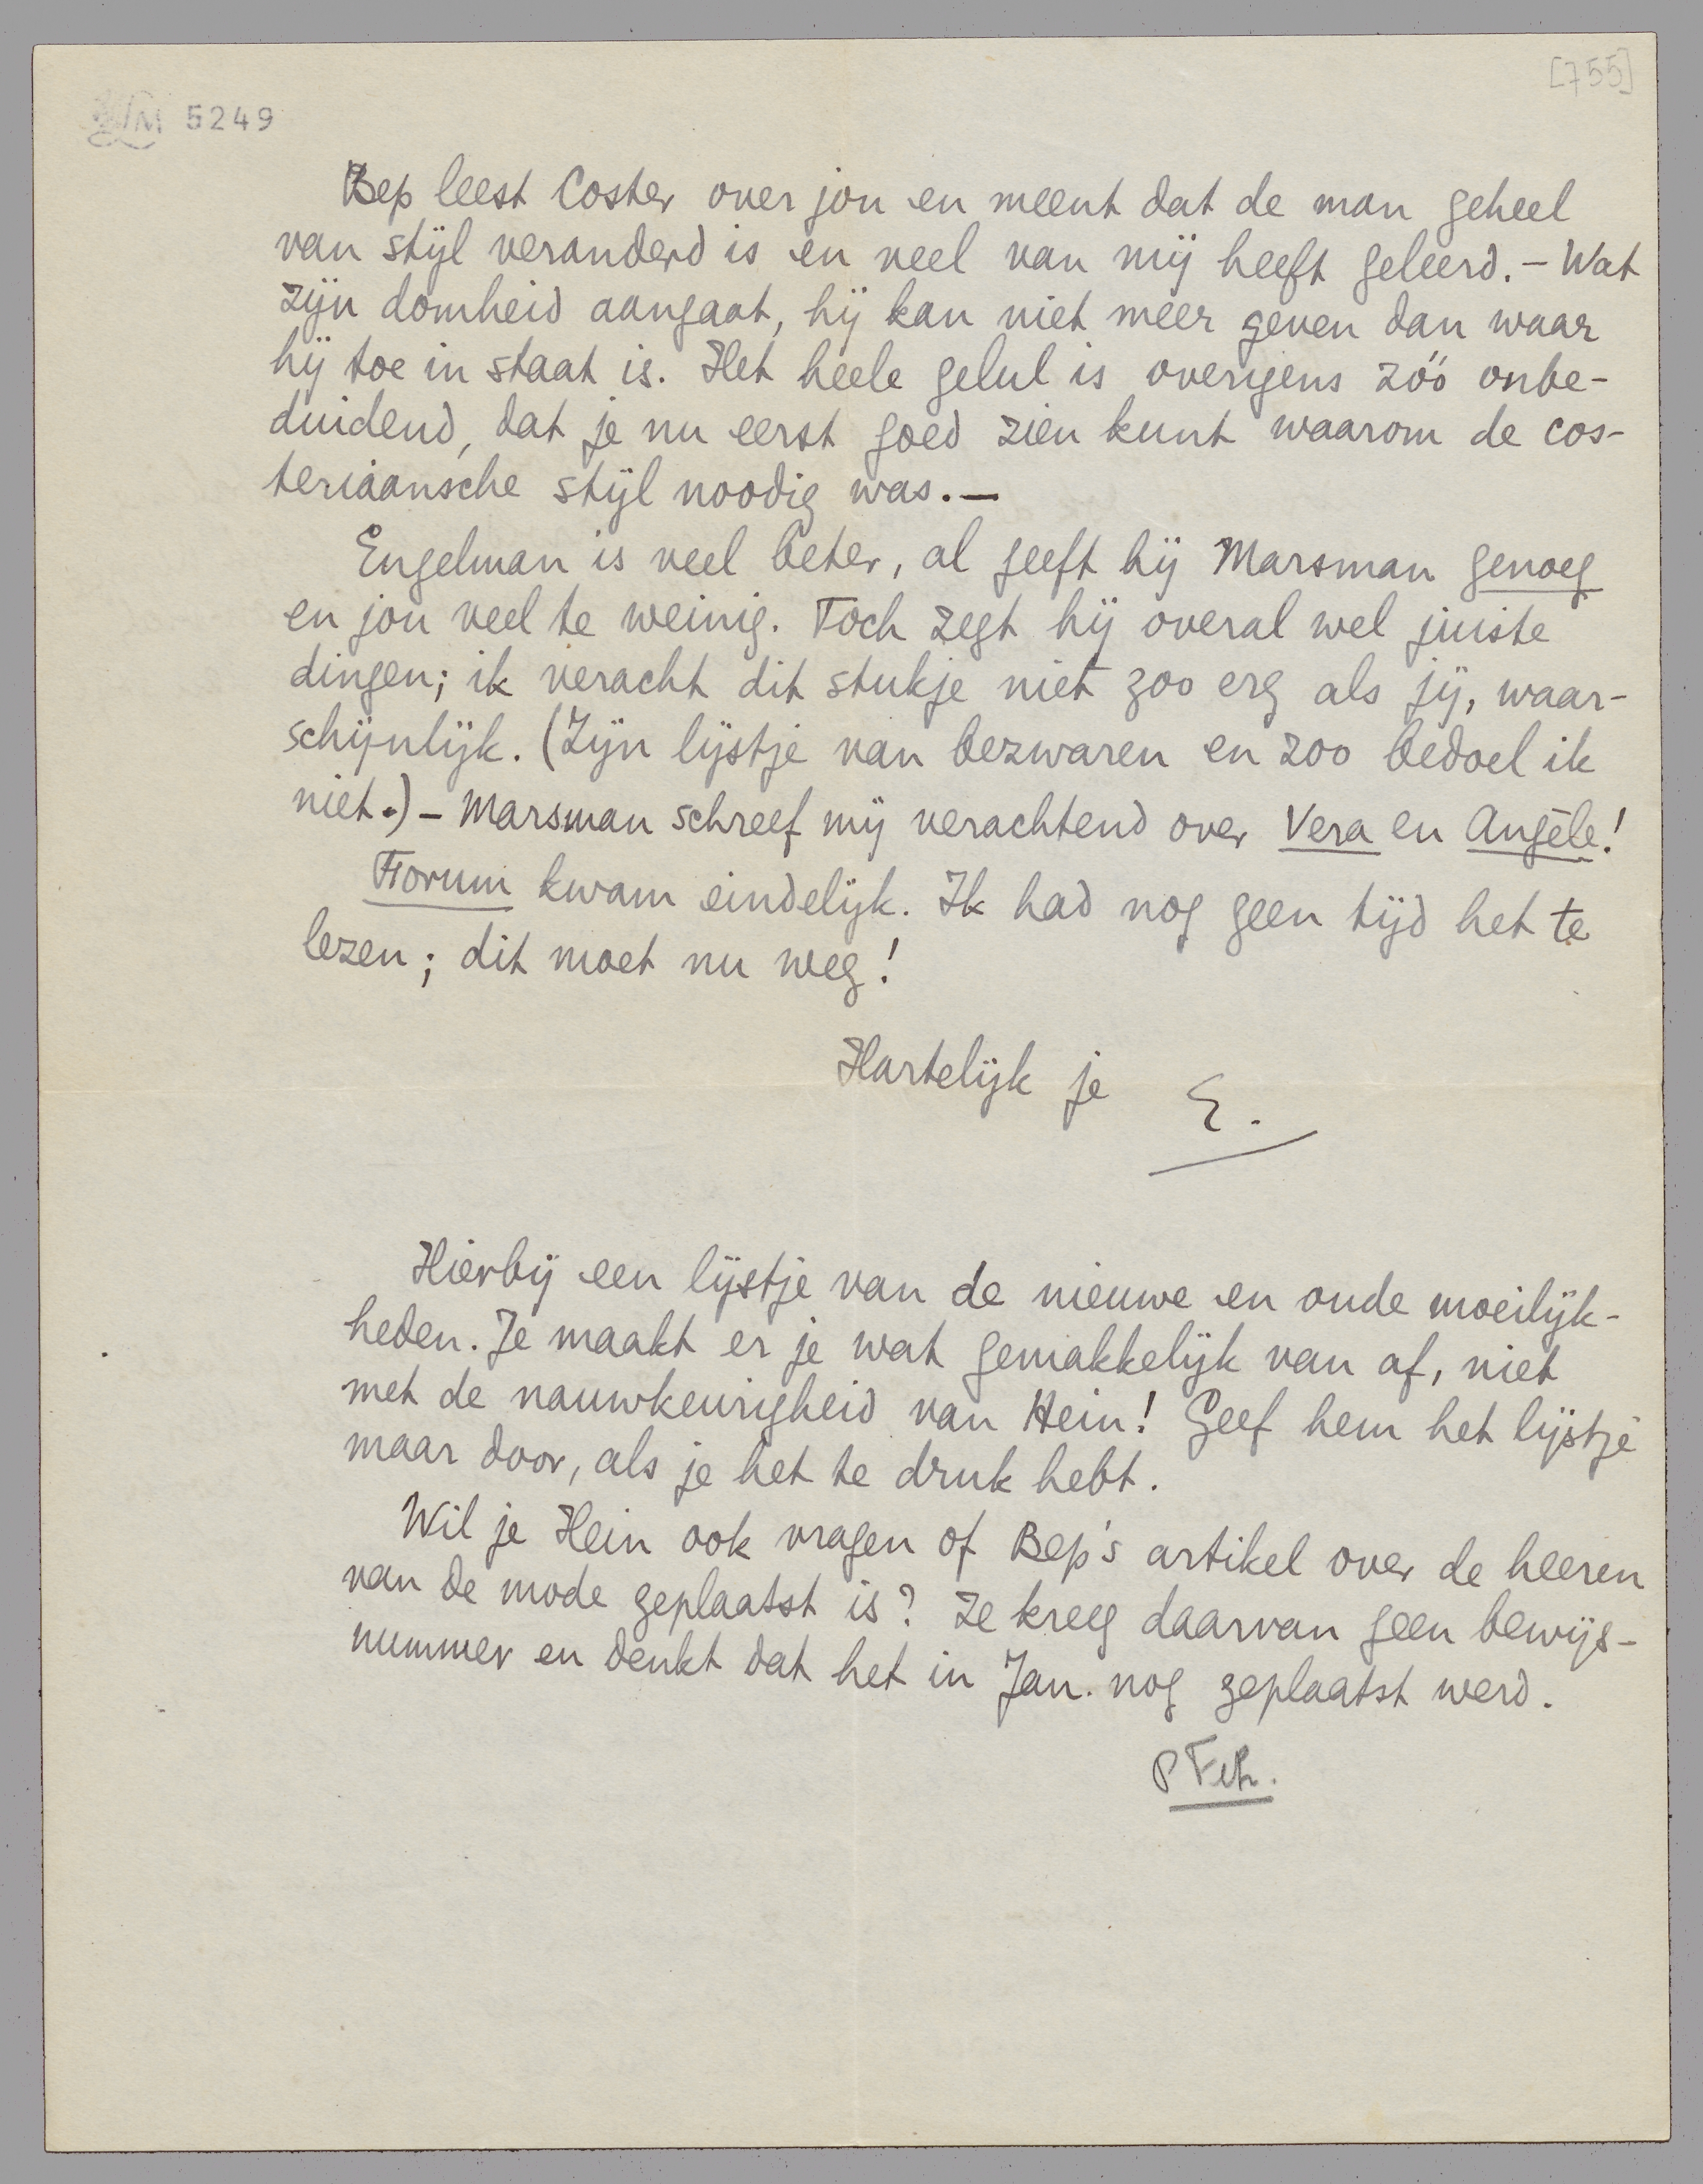 [755]
LM 5249
Bep leest Coster over jou en meent dat de man geheel
van stijl veranderd is en veel van mij heeft geleerd. – Wat
zijn domheid aangaat, hij kan niet meer geven dan waar
hij toe in staat is. Het heele gelul is overigens zóó onbe-
duidend, dat je nu eerst goed zien kunt waarom de cos-
teriaansche stijl noodig was. –
Engelman is veel beter, al geeft hij Marsman genoeg
en jou veel te weinig. Toch zegt hij overal wel juiste
dingen; ik veracht dit stukje niet zoo erg als jij, waar-
schijnlijk. (Zijn lijstje van bezwaren en zoo bedoel ik
niet.) – Marsman schreef mij verachtend over Vera en Angèle!
Forum kwam eindelijk. Ik had nog geen tijd het te
lezen; dit moet nu weg!
Hartelijk je E.
Hierbij een lijstje van de nieuwe en oude moeilijk-
heden. Je maakt er je wat gemakkelijk van af, niet
met de nauwkeurigheid van Hein! Geef hem het lijstje
maar door, als je het te druk hebt.
Wil je Hein ook vragen of Bep's artikel over de heeren
van de mode geplaatst is? Ze kreeg daarvan geen bewijs-
nummer en denkt dat het in Jan. nog geplaatst werd.